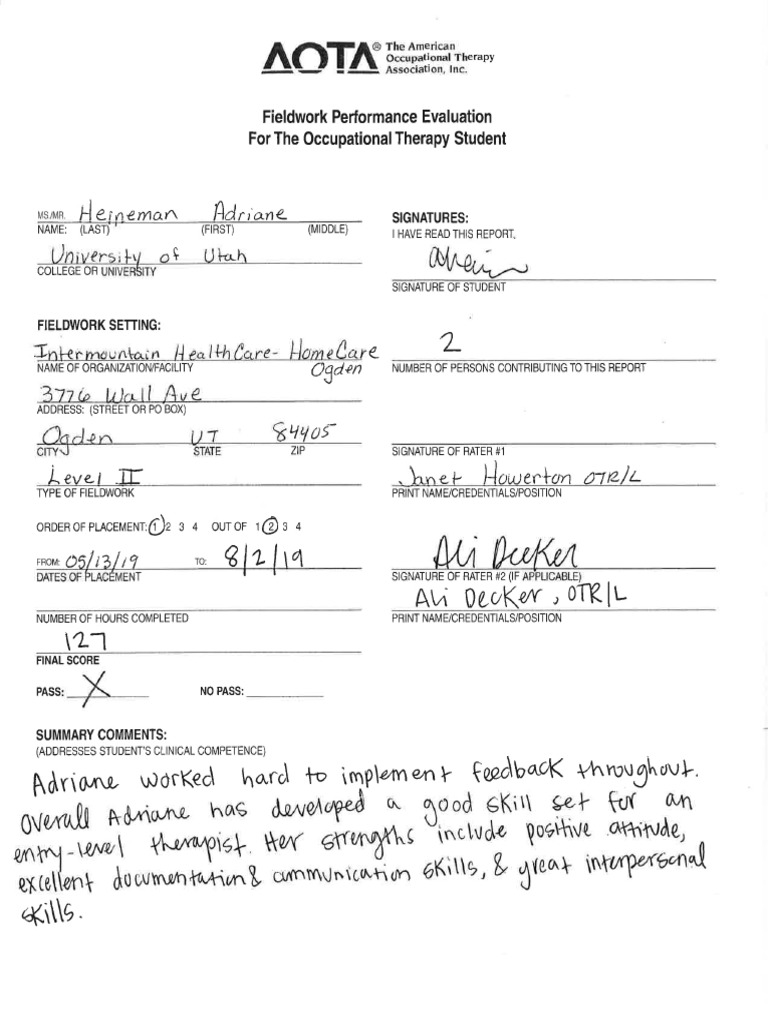 AOTA® The American
Occupational Therapy
Association, Inc.
Fieldwork Performance Evaluation
For The Occupational Therapy Student
MS./MR. Heineman Adriane
NAME: (LAST) (FIRST) (MIDDLE)
University of Utah
COLLEGE OR UNIVERSITY
SIGNATURES:
I HAVE READ THIS REPORT.
SIGNATURE OF STUDENT
FIELDWORK SETTING:
Intermountain HealthCare- HomeCare
Ogden
NAME OF ORGANIZATION/FACILITY
3776 Wall Ave
ADDRESS: (STREET OR PO BOX)
Ogden UT 84405
CITY STATE ZIP
Level II
TYPE OF FIELDWORK
ORDER OF PLACEMENT: 1 2 3 4 OUT OF 1 2 3 4
FROM: 05/13/19 TO: 8/2/19
DATES OF PLACEMENT
NUMBER OF HOURS COMPLETED
127
FINAL SCORE
PASS: X NO PASS:
2
NUMBER OF PERSONS CONTRIBUTING TO THIS REPORT
SIGNATURE OF RATER #1
Janet Howerton OTR/L
PRINT NAME/CREDENTIALS/POSITION
Ali Decker
SIGNATURE OF RATER #2 (IF APPLICABLE)
Ali Decker, OTR/L
PRINT NAME/CREDENTIALS/POSITION
SUMMARY COMMENTS:
(ADDRESSES STUDENT'S CLINICAL COMPETENCE)
Adriane worked hard to implement feedback throughout.
Overall Adriane has developed a good skill set for an
entry-level therapist. Her strengths include positive attitude,
excellent documentation & communication skills, & great interpersonal
skills.